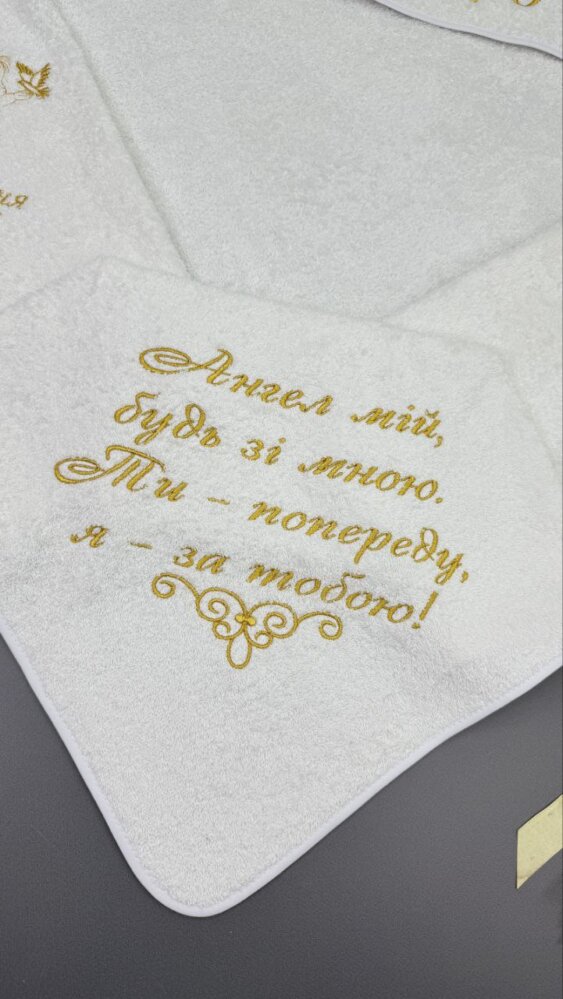 Ангел мій,
будь зі мною.
Ти - попереду,
я - за тобою!